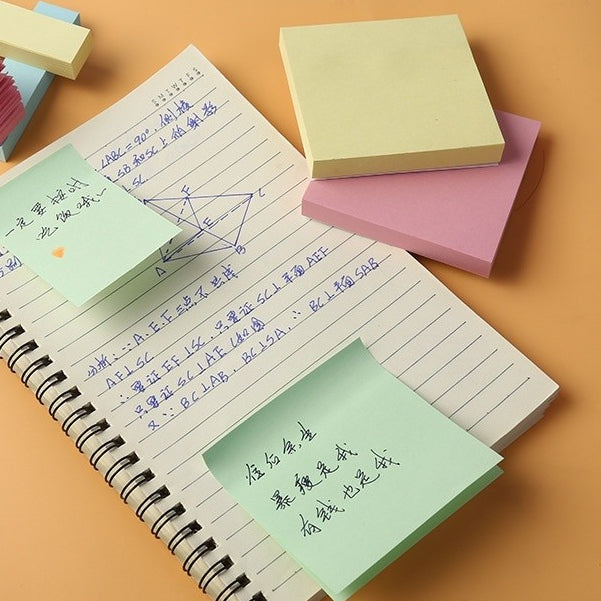 ∠ABC=90°，侧棱
SB和SC上的射影
⊥SC
F
C
E
A
B
一定要按时
吃饭哦~
分析：∵A、E、F三点不共线
AF⊥SC
∴要证EF⊥SC，只要证SC⊥平面AEF
只要证SC⊥AE（如图
又∵BC⊥AB，BC⊥SA，∴BC⊥平面SAB
往后余生
暴瘦是我
有钱也是我